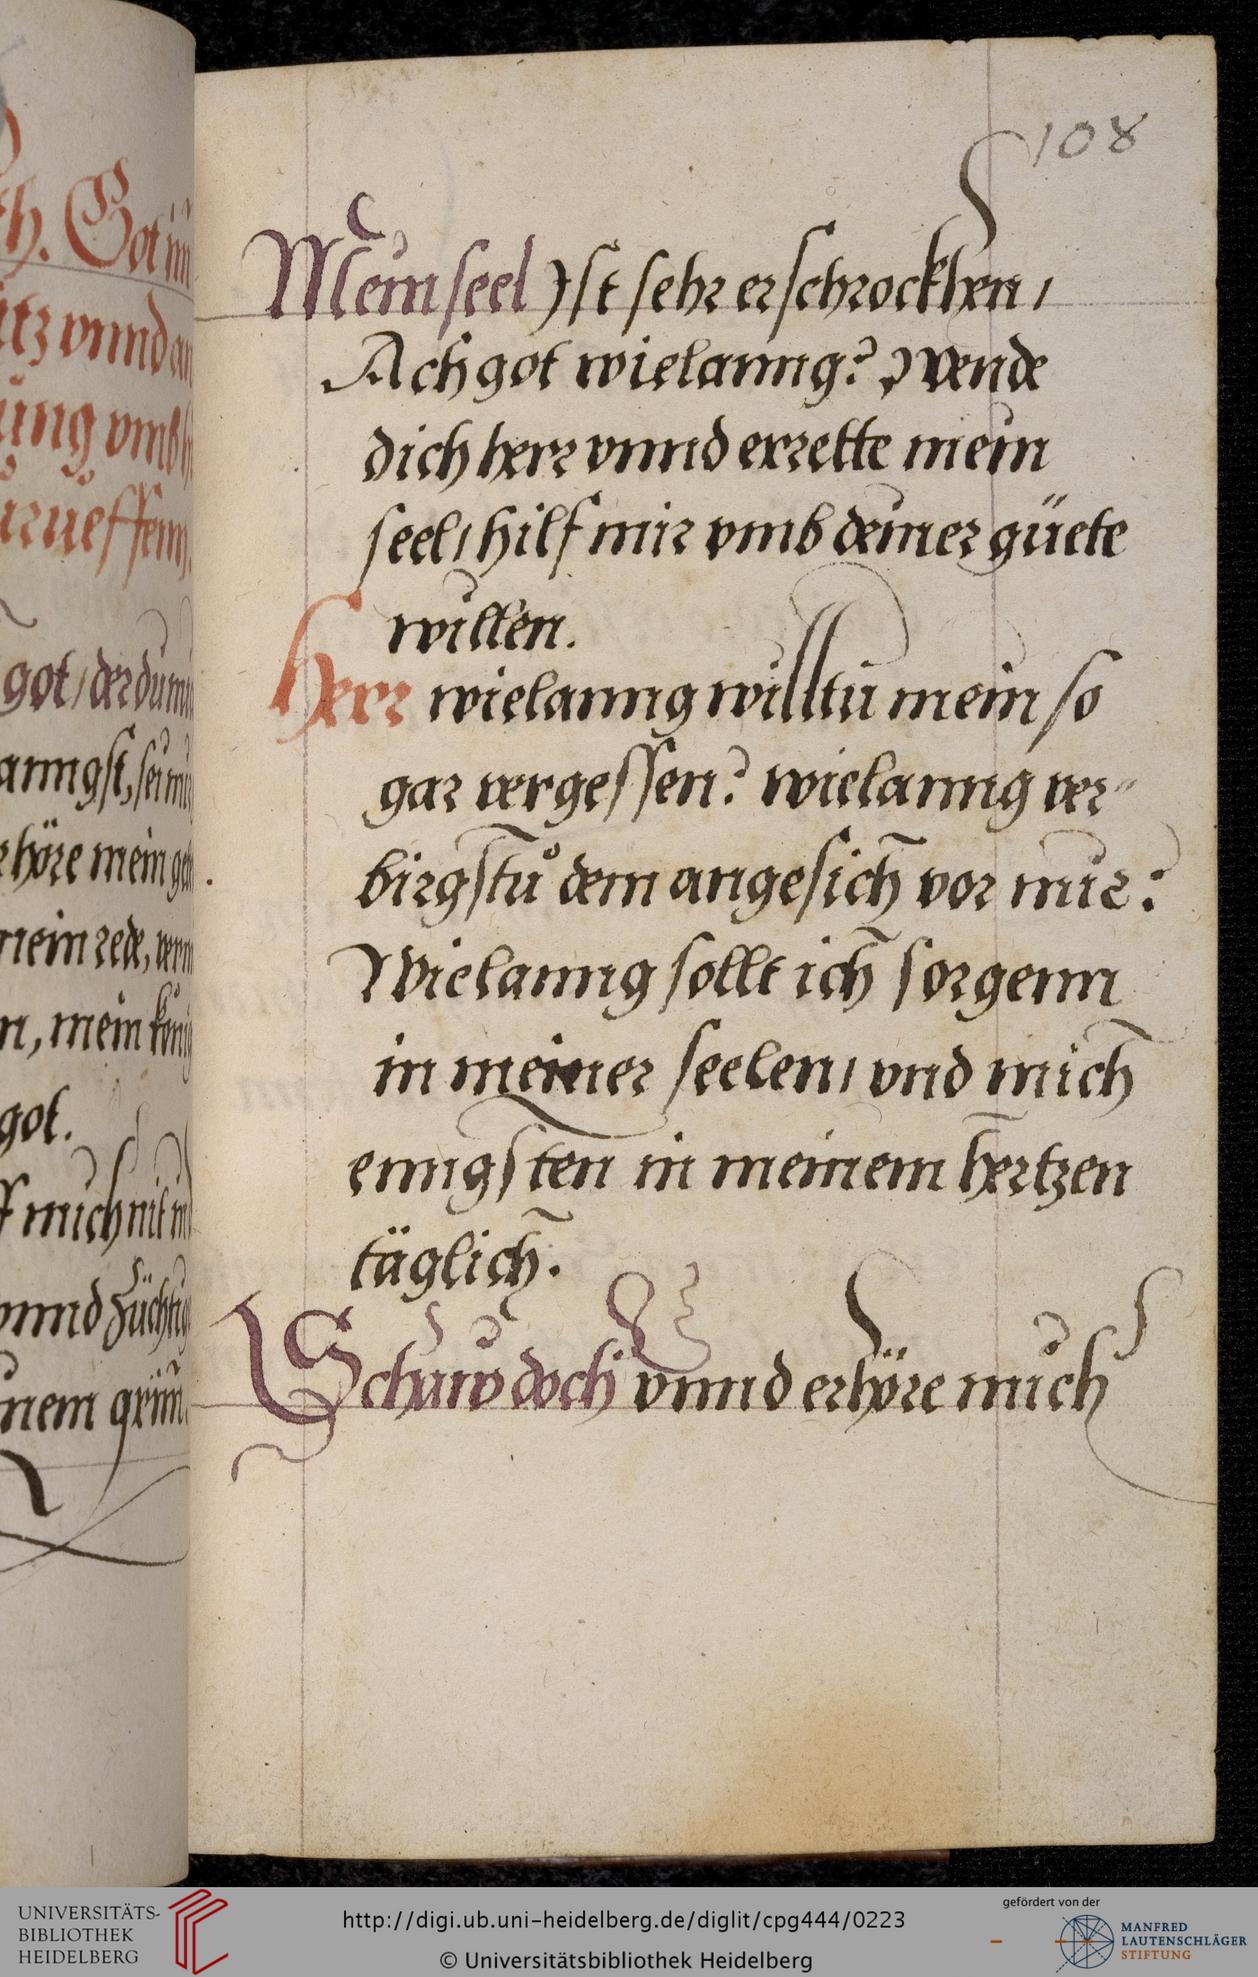 108
Mein seel Ist sehr erschrockhen /
Ach got wielanng? Wende
dich herr vnnd errette mein
seel / hilf mir vmb deiner güete
willen.
Herr wielanng willtu mein so
gar vergessen? wielanng ver-
birgstu dein angesich vor mir?
Wielanng sollt ich sorgenn
in meiner seelen / vnd mich
enngsten in meinem hertzen
täglich.
Schaw doch vnnd erhöre mich
h. Got im
vnnd
vmb
got / der du
anngst, sei mir
erhöre mein
mein rede,
mein
got.
mich nit in
vnnd züchtig
UNIVERSITÄTS-
BIBLIOTHEK
HEIDELBERG
http://digi.ub.uni-heidelberg.de/diglit/cpg444/0223
© Universitätsbibliothek Heidelberg
gefördert von der
MANFRED
LAUTENSCHLÄGER
STIFTUNG